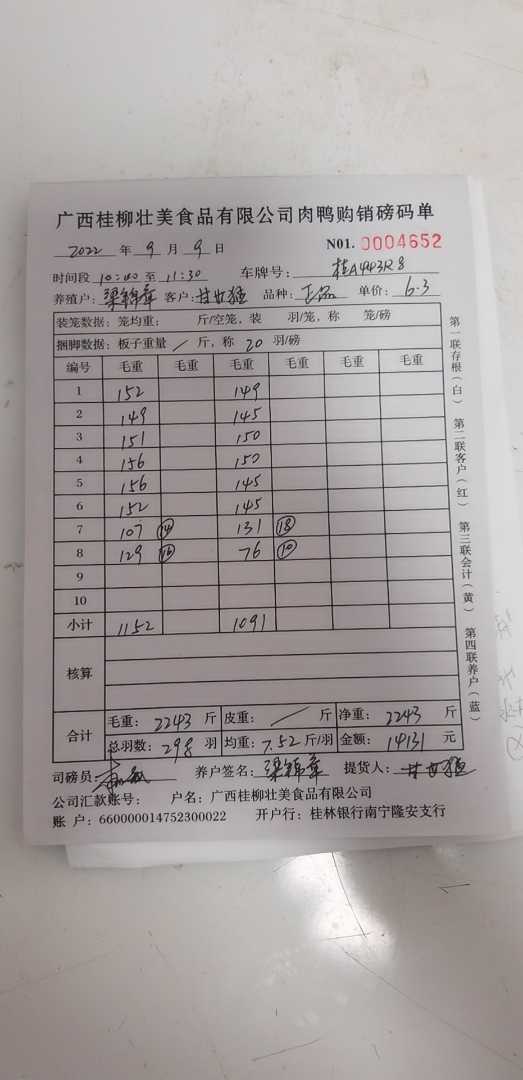 广西桂柳壮美食品有限公司肉鸭购销磅码单
2022 年 9 月 9 日 N01. 0004652
时间段 10:00 至 11:30 车牌号: 桂A443R8
养殖户: 梁锦章 客户: 甘世猛 品种: 正品 单价: 6.3
装笼数据: 笼均重: 斤/空笼, 装 羽/笼, 称 笼/磅
捆脚数据: 板子重量 / 斤, 称 20 羽/磅
编号 毛重 毛重 毛重 毛重 毛重 毛重
1 152 149
2 149 145
3 151 150
4 156 150
5 156 145
6 152 145
7 107 ⑭ 131 ⑱
8 129 ⑯ 76 ⑩
9
10
小计 1152 1091
核算
合计
毛重: 2243 斤 皮重: / 斤 净重: 2243 斤
总羽数: 298 羽 均重: 7.52 斤/羽 金额: 14131 元
司磅员: 养户签名: 梁锦章 提货人: 甘世猛
公司汇款账号: 户名: 广西桂柳壮美食品有限公司
账 户: 660000014752300022 开户行: 桂林银行南宁隆安支行
第一联存根(白) 第二联客户(红) 第三联会计(黄) 第四联养户(蓝)